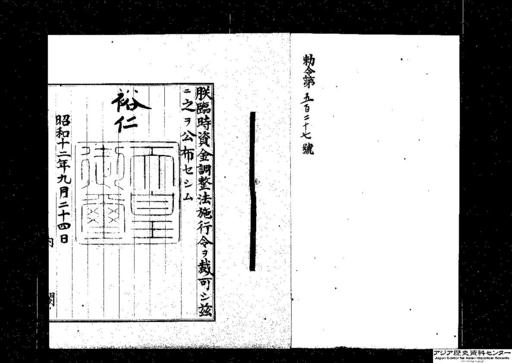 勅令第五百二十七號
朕臨時資金調整法施行令ヲ裁可シ茲
ニ之ヲ公布セシム
裕仁
天皇御璽
昭和十二年九月二十四日
内閣
アジア歴史資料センター
Japan Center for Asian Historical Records